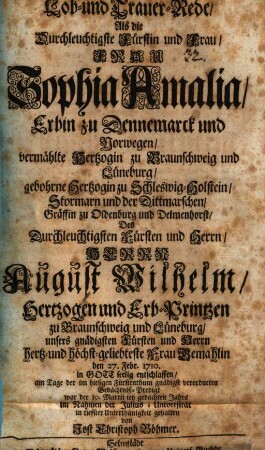 Lob-und Trauer-Rede/
Als die
Durchleuchtigste Fürstin und Frau/
FRAU
Sophia Amalia/
Erbin zu Dennemarck und
Norwegen/
vermählte Hertzogin zu Braunschweig und
Lüneburg/
gebohrne Hertzogin zu Schleswig-Holstein/
Stormarn und der Dittmarschen/
Gräffin zu Oldenburg und Delmenhorst/
Des
Durchleuchtigsten Fürsten und Herrn/
HERRN
August Wilhelm/
Hertzogen und Erb-Printzen
zu Braunschweig und Lüneburg/
unsers gnädigsten Fürsten und Herrn
hertz-und höchst-geliebteste Frau Gemahlin
den 27. Febr. 1710.
in GOTT seelig entschlaffen/
am Tage der im hiesigen Fürstenthum gnädigst verordneten
Gedächtniß-Predigt
war der 30. Martii itzt gedachten Jahrs
im Nahmen der Julius Universität
in tieffster Unterthänigkeit gehalten
von
Just Christoph Böhmer.
Helmstädt